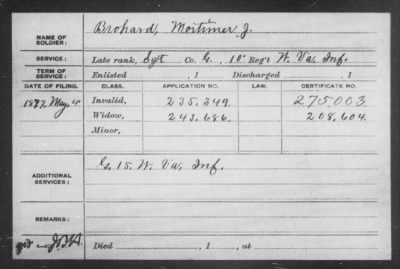 NAME OF SOLDIER: Brohard, Mortimer J.
SERVICE: Late rank, Sgt Co. G, 10" Reg't W. Va. Inf.
TERM OF SERVICE: Enlisted , 1 Discharged , 1
DATE OF FILING. CLASS. APPLICATION NO. LAW. CERTIFICATE NO.
1877 May, 4" Invalid, 235.349. 275003.
Widow, 243.686. 208,604.
Minor,
ADDITIONAL SERVICES: G. 15. W. Va. Inf.
REMARKS:
Died , 1 , at